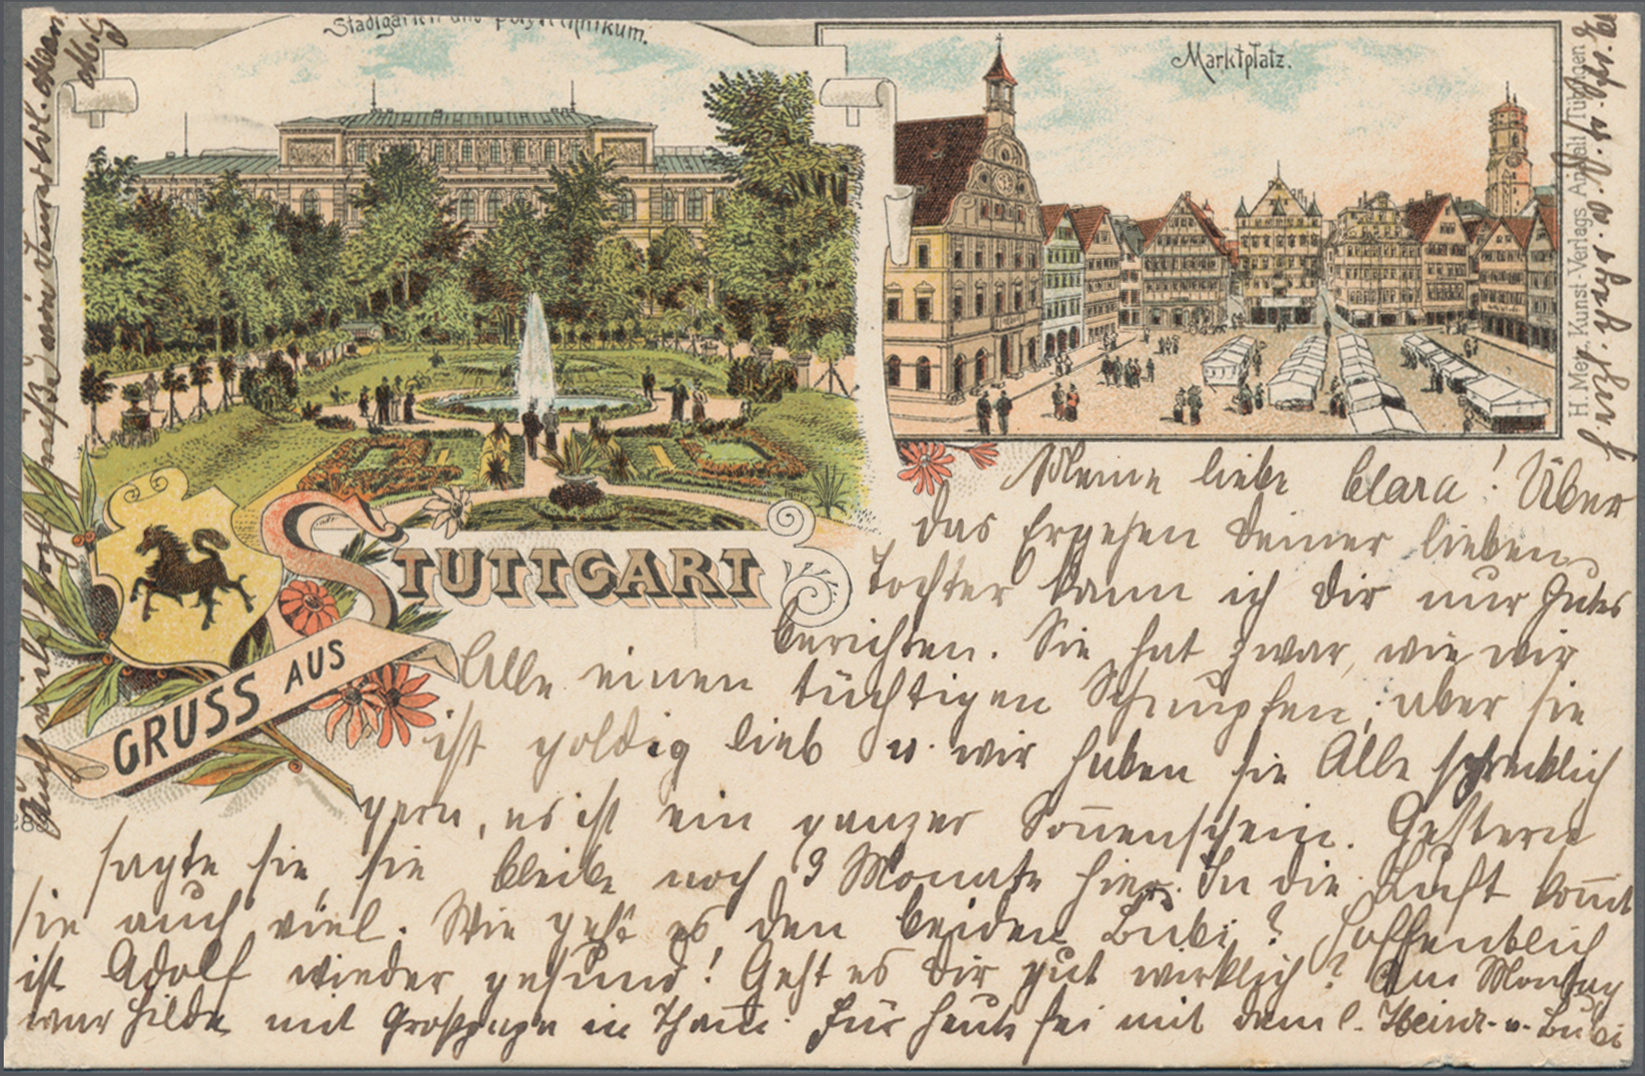 Stadtgarten und Polytechnikum.
Marktplatz.
STUTTGART
GRUSS AUS
H. Metz, Kunst-Verlags-Anstalt, Tübingen
Meine liebe Clara! Über
das Ergehen Deiner lieben
Tochter kann ich Dir nur Gutes
berichten. Sie hat zwar, wie wir
Alle einen tüchtigen Schnupfen, aber sie
ist goldig lieb u. wir haben sie Alle schrecklich
gern, es ist ein ganzer Soñenschein. Gestern
sagte sie, sie bleibe noch 3 Monate hier. In die Luft kom̃t
sie auch viel. Wie geht es den beiden Bubi? Hoffentlich
ist Adolf wieder gesund! Geht es Dir gut wirklich? Am Montag
war Hilde mit Großpapa in Tham̃. Für heute sei mit dem l. Heinr. u. Bubi